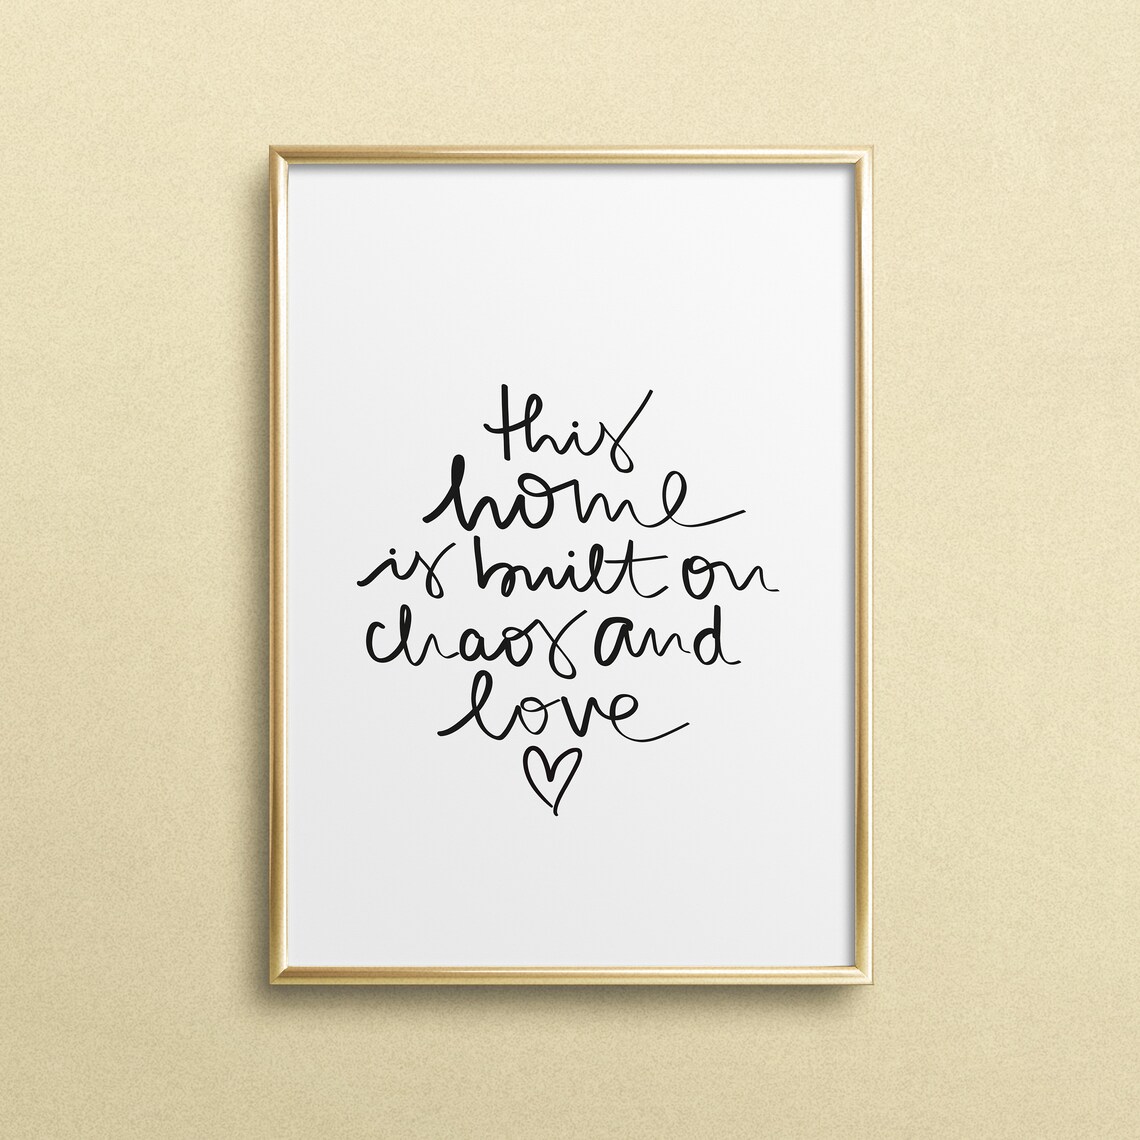 this
home
is built on
chaos and
love